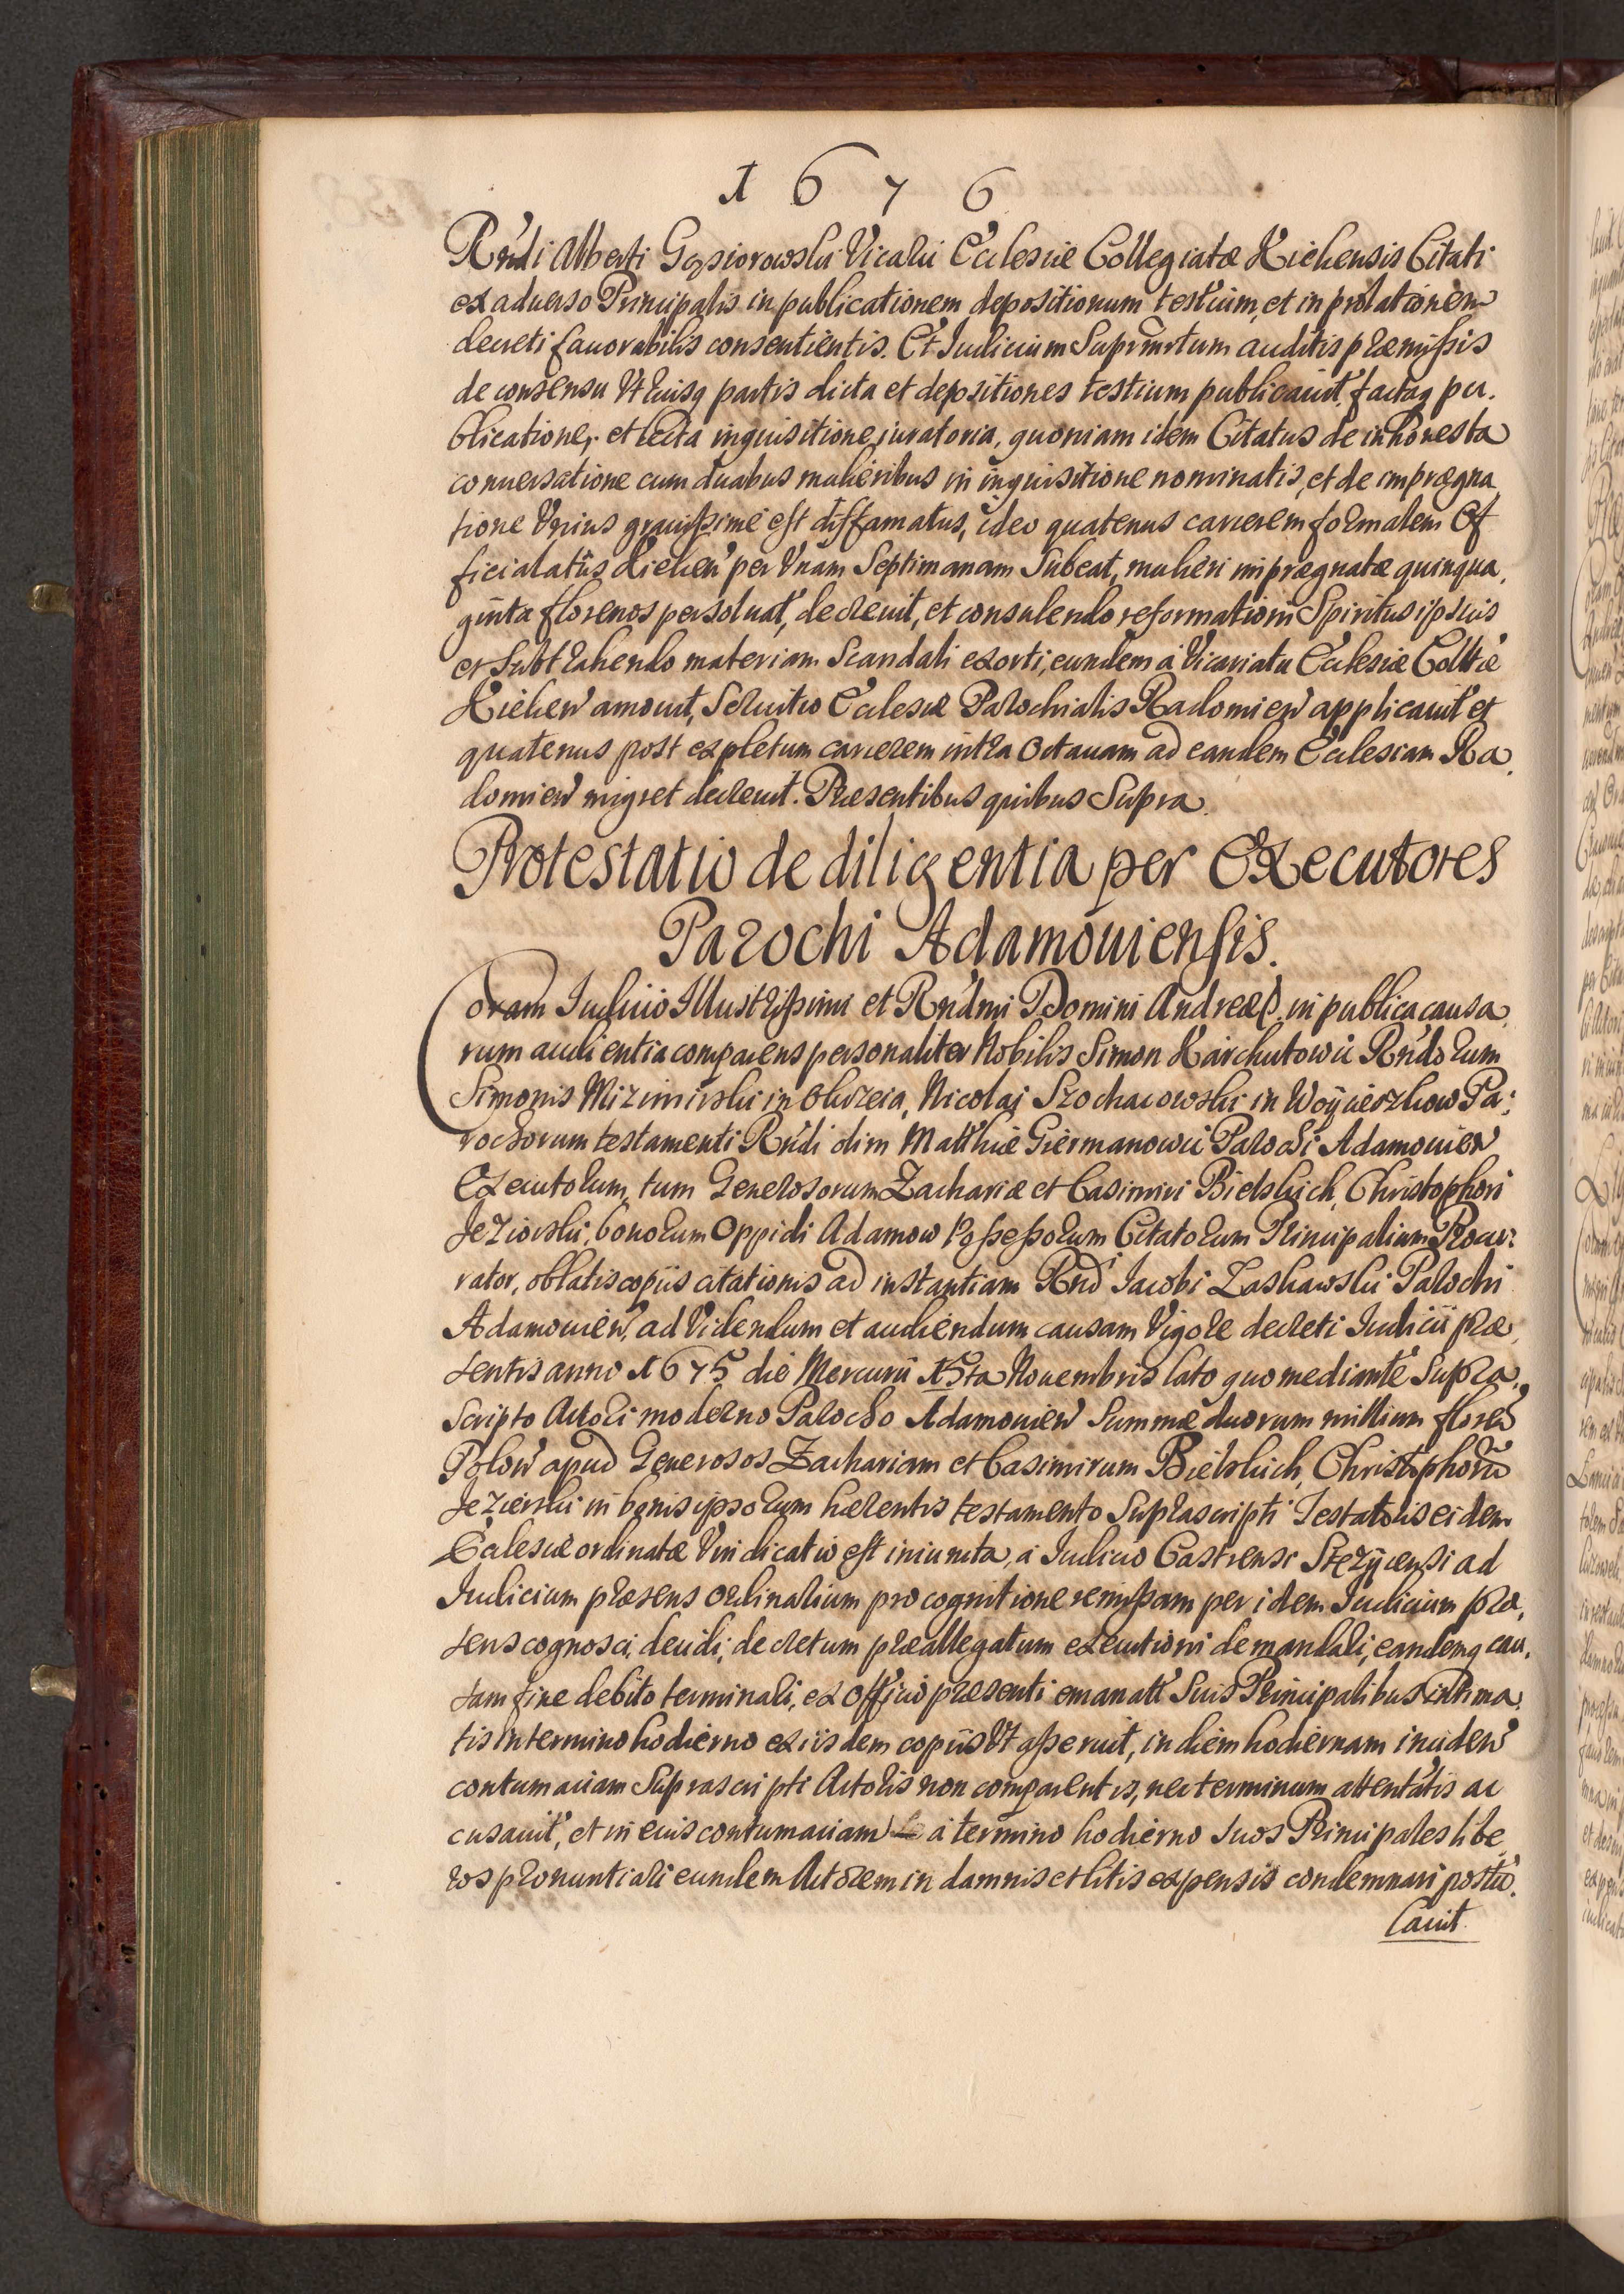 1676
Rndi Alberti Gąsiorowski Vicarii Ecclesiæ Collegiatæ Kielcensis Citati
ex aduerso Principalis in publicationem depositionum testium, et in prolationem
decreti fauorabilis consentientis. Et Iudicium Suprmrtum auditis præmissis
de consensu Vtriusq partis dicta et depositiones testium publicauit, factaq pu.
blicatione, et lecta inquisitione iuratoria, quoniam idem Citatus de inhonesta
conuersatione cum duabus mulieribus in inquisitione nominatis, et de imprægna
tione Vnius grauissime est diffamatus, ideo quatenus carcerem formalem Of
ficialatus Kielcen per Vnam Septimanam Subeat, mulieri imprægnatæ quinqua,
ginta florenos persoluat, decreuit, et consulendo reformationi Spiritus ipsius
et Subtrahendo materiam Scandali exorti, eundem à Vicariatu Ecclesiæ Colltæ
Kielcen amouit, Seruitio Ecclesiæ Parochialis Radomien applicauit et
quatenus post expletum carcerem intra Octauam ad eandem Ecclesiam Ra,
domien migret decreuit. Præsentibus quibus Supra.
Protestatio de diligentia per Executores
Parochi Adamouiensis.
Coram Iudicio Illustrissimi et Rndmi Domini Andreæ P. in publica causa,
rum audientia comparens personaliter Nobilis Simon Karchutowic Rndorum
Simonis Mizimirski in Okrzeia, Nicolai Szochacowski in Woycieszkow Pa:
rochorum testamenti Rndi olim Matthiæ Giermanowic Parochi Adamouien
Executorum, tum Generosorum Zachariæ et Casimiri Bielskich, Christophori
Jezioski, bonorum Oppidi Adamow Possessorum Citatorum Principalium Procu:
rator, oblatis copiis citationis ad instantiam Rnd Iacobi Laskawski Parochi
Adamouien, ad Videndum et audiendum causam Vigore decreti Iudicii præ,
sentis anno 1675 die Mercurii 13ta Nouembris lato quo mediante Supra,
scripto Actori moderno Parocho Adamouien Summæ duorum millium floren
Polon apud Generosos Zachariam et Casimirum Bielskich, Christophoru
Jezierski in bonis ipsorum hærentis testamento Suprascripti Testatoris eidem
Ecclesiæ ordinatæ Vindicatio est iniuncta, à Iudicio Castrensi Stezÿcensi ad
Iudicium præsens ordinarium pro cognitione remissam per idem Iudicium præ,
sens cognosci, decidi, decretum præallegatum executioni demandari, eandemq cau,
sam fine debito terminari, ex officio præsenti emanatt Suis Principalibus intima,
tis in termino hodierno ex iisdem copiis Vt asseruit, in diem hodiernam inciden
contumaciam Suprascripti Actoris non comparentis, nec terminum attentatis ac
cusauit, et in eius contumaciam à termino hodierno Suos Principales libe,
ros pronuntiari eundem Actorem in damnis et litis expensis condemnari postu,
lauit.